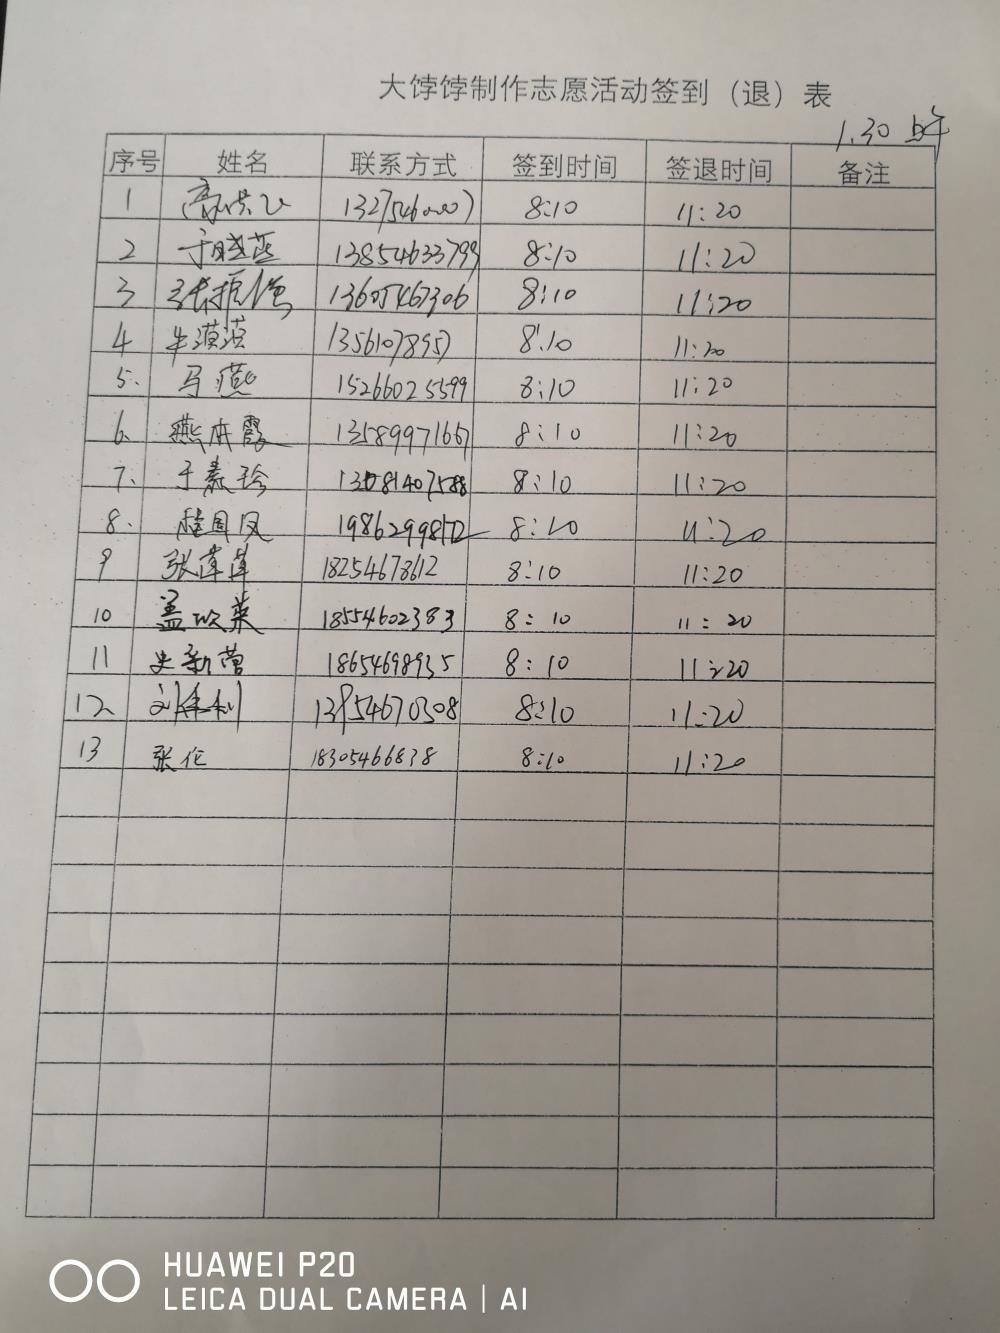 大饽饽制作志愿活动签到（退）表
1.30 上午
序号 姓名 联系方式 签到时间 签退时间 备注
1 8:10 11:20
2 于晓燕 13854633799 8:10 11:20
3 13605467306 8:10 11:20
4 牛漠漠 13561078957 8:10 11:20
5. 马燕 15266025599 8:10 11:20
6. 燕成霞 13589971667 8:10 11:20
7. 于素珍 8:10 11:20
8. 桂国凤 8:10 11:20
9 张莲莲 18254678612 8:10 11:20
10 盖欣英 18554602383 8:10 11:20
11 史新营 18654698935 8:10 11:20
12. 8:10 11:20
13 张伦 18305466838 8:10 11:20
HUAWEI P20
LEICA DUAL CAMERA | AI